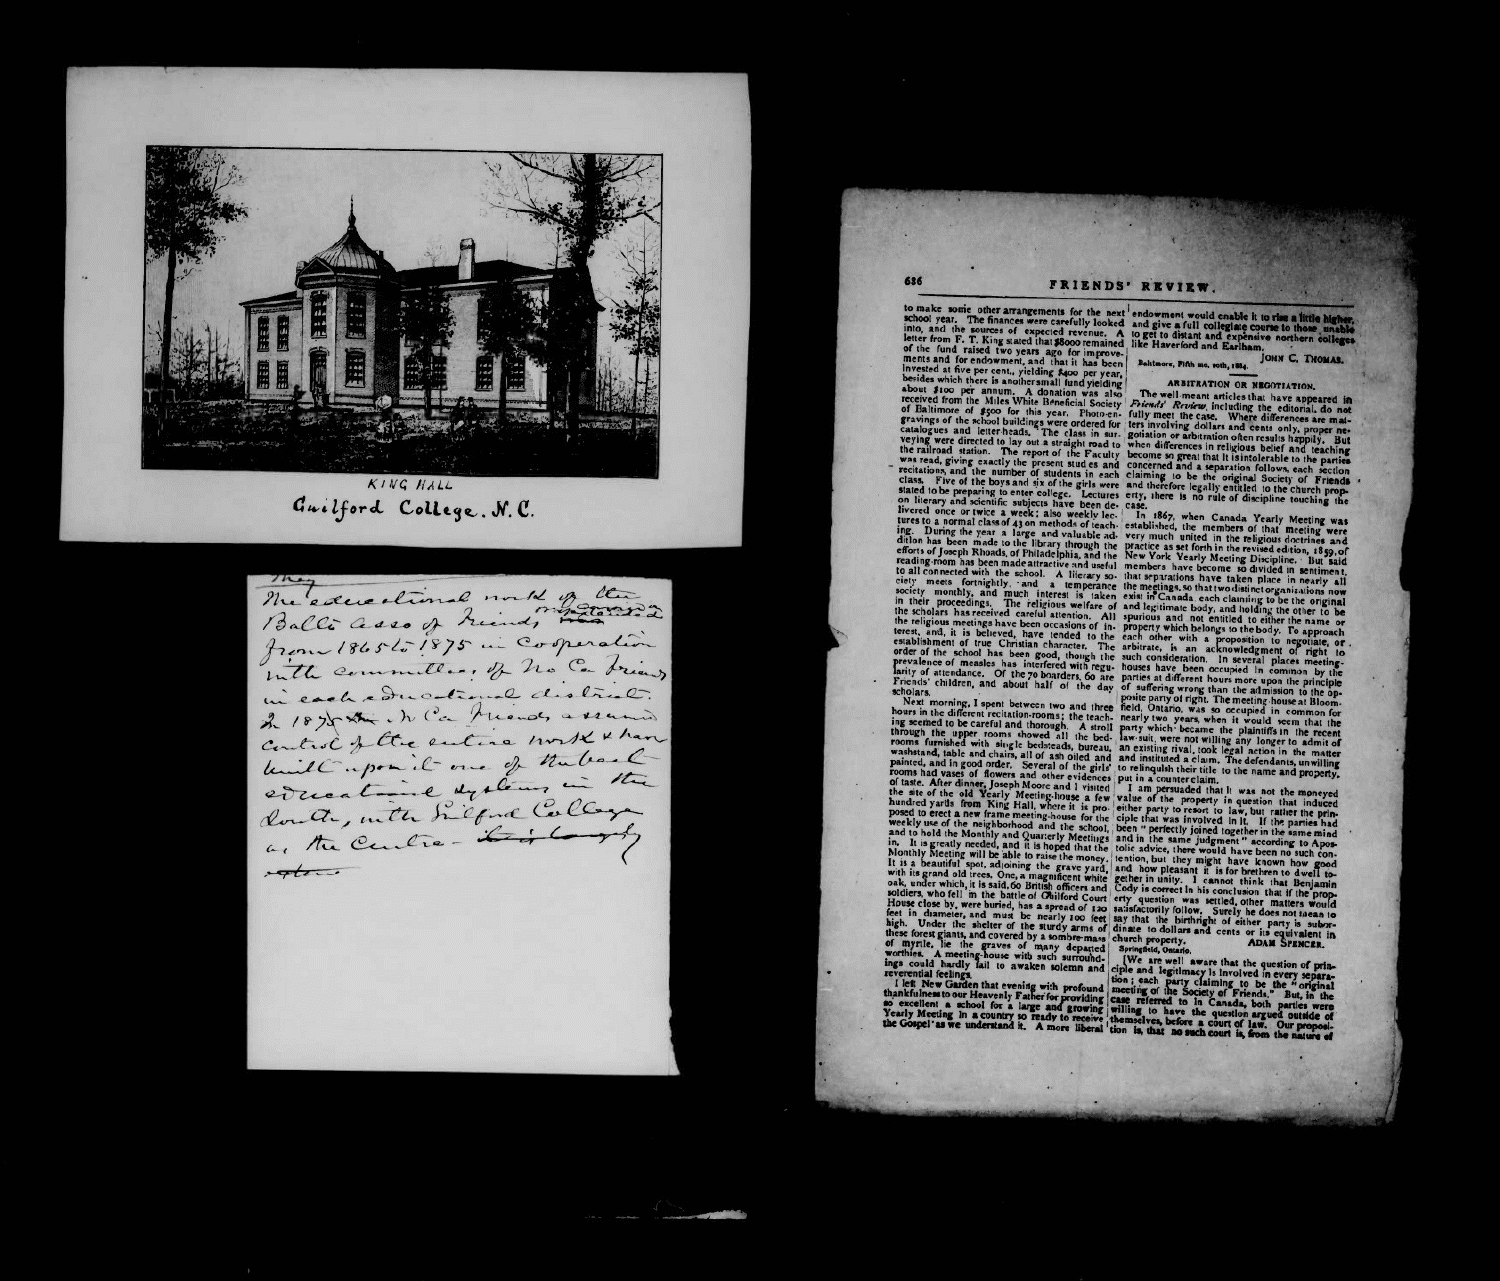 KING HALL
Guilford College. N.C.
They
The educational work of the
Balto Asso of Friends
from 1865 to 1875 in cooperation
with committees of No Ca Friends
in each educational district.
In 1875 N Ca Friends assumed
control of the entire work & have
built upon it one of the best
educational systems in the
South, with Guilford College
as the Centre -
686
FRIENDS' REVIEW.
to make some other arrangements for the next
school year. The finances were carefully looked
into, and the sources of expected revenue. A
letter from F. T. King stated that $8000 remained
of the fund raised two years ago for improve-
ments and for endowment, and that it has been
invested at five per cent., yielding $400 per year,
besides which there is another small fund yielding
about $100 per annum. A donation was also
received from the Miles White Beneficial Society
of Baltimore of $500 for this year. Photo-en-
gravings of the school buildings were ordered for
catalogues and letter-heads. The class in sur-
veying were directed to lay out a straight road to
the railroad station. The report of the Faculty
was read, giving exactly the present studies and
recitations, and the number of students in each
class. Five of the boys and six of the girls were
stated to be preparing to enter college. Lectures
on literary and scientific subjects have been de-
livered once or twice a week; also weekly lec-
tures to a normal class of 43 on methods of teach-
ing. During the year a large and valuable ad-
dition has been made to the library through the
efforts of Joseph Rhoads, of Philadelphia, and the
reading-room has been made attractive and useful
to all connected with the school. A literary so-
ciety meets fortnightly, and a temperance
society monthly, and much interest is taken
in their proceedings. The religious welfare of
the scholars has received careful attention. All
the religious meetings have been occasions of in-
terest, and, it is believed, have tended to the
establishment of true Christian character. The
order of the school has been good, though the
prevalence of measles has interfered with regu-
larity of attendance. Of the 70 boarders, 60 are
Friends' children, and about half of the day
scholars.
Next morning, I spent between two and three
hours in the different recitation-rooms; the teach-
ing seemed to be careful and thorough. A stroll
through the upper rooms showed all the bed-
rooms furnished with single bedsteads, bureau,
washstand, table and chairs, all of ash oiled and
painted, and in good order. Several of the girls'
rooms had vases of flowers and other evidences
of taste. After dinner, Joseph Moore and I visited
the site of the old Yearly Meeting-house a few
hundred yards from King Hall, where it is pro-
posed to erect a new frame meeting-house for the
weekly use of the neighborhood and the school,
and to hold the Monthly and Quarterly Meetings
in. It is greatly needed, and it is hoped that the
Monthly Meeting will be able to raise the money.
It is a beautiful spot, adjoining the grave yard,
with its grand old trees. One, a magnificent white
oak, under which, it is said, 60 British officers and
soldiers, who fell in the battle of Guilford Court
House close by, were buried, has a spread of 120
feet in diameter, and must be nearly 100 feet
high. Under the shelter of the sturdy arms of
these forest giants, and covered by a sombre mass
of myrtle, lie the graves of many departed
worthies. A meeting-house with such surround-
ings could hardly fail to awaken solemn and
reverential feelings.
I left New Garden that evening with profound
thankfulness to our Heavenly Father for providing
so excellent a school for a large and growing
Yearly Meeting in a country so ready to receive
the Gospel as we understand it. A more liberal
endowment would enable it to rise a little higher,
and give a full collegiate course to those unable
to get to distant and expensive northern colleges
like Haverford and Earlham.
JOHN C. THOMAS.
Baltimore, Fifth mo. 10th, 1884.
ARBITRATION OR NEGOTIATION.
The well meant articles that have appeared in
Friends' Review, including the editorial, do not
fully meet the case. Where differences are mat-
ters involving dollars and cents only, proper ne-
gotiation or arbitration often results happily. But
when differences in religious belief and teaching
become so great that it is intolerable to the parties
concerned and a separation follows, each section
claiming to be the original Society of Friends
and therefore legally entitled to the church prop-
erty, there is no rule of discipline touching the
case.
In 1867, when Canada Yearly Meeting was
established, the members of that meeting were
very much united in the religious doctrines and
practice as set forth in the revised edition, 1859, of
New York Yearly Meeting Discipline. But said
members have become so divided in sentiment,
that separations have taken place in nearly all
the meetings, so that two distinct organizations now
exist in Canada, each claiming to be the original
and legitimate body, and holding the other to be
spurious and not entitled to either the name or
property which belongs to the body. To approach
each other with a proposition to negotiate, or
arbitrate, is an acknowledgment of right to
such consideration. In several places meeting-
houses have been occupied in common by the
parties at different hours more upon the principle
of suffering wrong than the admission to the op-
posite party of right. The meeting-house at Bloom-
field, Ontario, was so occupied in common for
nearly two years, when it would seem that the
party which became the plaintiffs in the recent
law-suit, were not willing any longer to admit of
an existing rival, took legal action in the matter
and instituted a claim. The defendants, unwilling
to relinquish their title to the name and property,
put in a counter claim.
I am persuaded that it was not the moneyed
value of the property in question that induced
either party to resort to law, but rather the prin-
ciple that was involved in it. If the parties had
been "perfectly joined together in the same mind
and in the same judgment" according to Apos-
tolic advice, there would have been no such con-
tention, but they might have known how good
and how pleasant it is for brethren to dwell to-
gether in unity. I cannot think that Benjamin
Cody is correct in his conclusion that if the prop-
erty question was settled, other matters would
satisfactorily follow. Surely he does not mean to
say that the birthright of either party is subor-
dinate to dollars and cents or its equivalent in
church property.
ADAM SPENCER.
Springfield, Ontario.
[We are well aware that the question of prin-
ciple and legitimacy is involved in every separa-
tion; each party claiming to be the "original
meeting of the Society of Friends." But, in the
case referred to in Canada, both parties were
willing to have the question argued outside of
themselves, before a court of law. Our proposi-
tion is, that no such court is, from the nature of